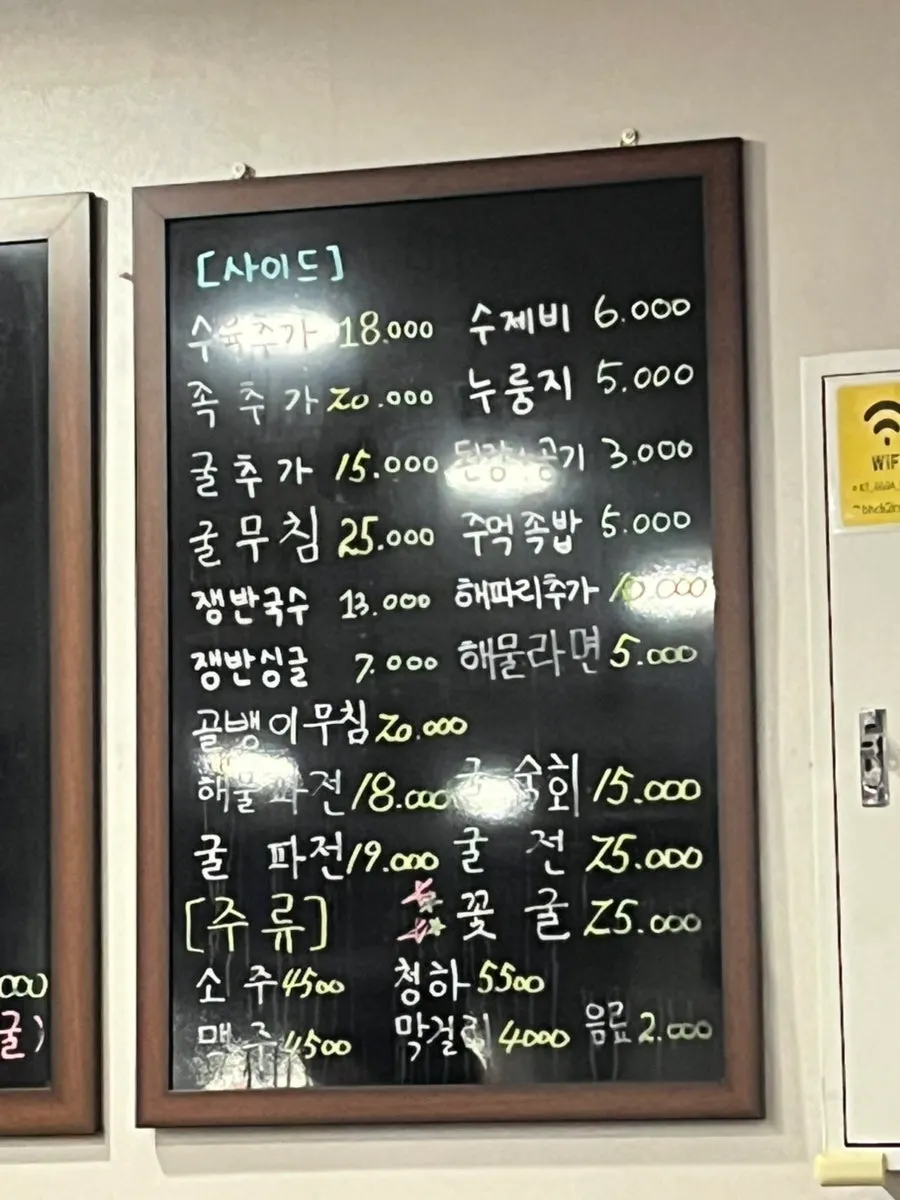 [사이드]
수육추가 18.000 수제비 6.000
족추가 20.000 누룽지 5.000
굴추가 15.000 된장+공기 3.000
굴무침 25.000 주먹족밥 5.000
쟁반국수 13.000 해파리추가 10.000
쟁반싱글 7.000 해물라면 5.000
골뱅이무침 20.000
해물파전 18.000 굴 숙회 15.000
굴 파전 19.000 굴 전 25.000
[주류] 꽃 굴 25.000
소주 4500 청하 5500
맥주 4500 막걸리 4000 음료 2.000
000
굴)
WiF